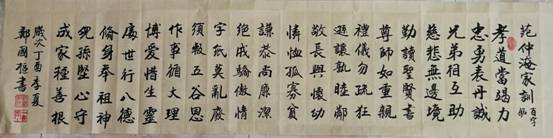 范仲淹家訓百字銘
孝道當竭力
忠勇表丹誠
兄弟相互助
慈悲無邊境
勤讀聖賢書
尊師如重親
禮儀勿疏狂
遜讓敦睦鄰
敬長與懷幼
憐恤孤寡貧
謙恭尚廉潔
絕戒驕傲情
字紙莫亂廢
須報五谷恩
作事循天理
博愛惜生靈
處世行八德
修身奉祖神
兒孫堅心守
成家種善根
歲次丁酉季夏
鄭國書